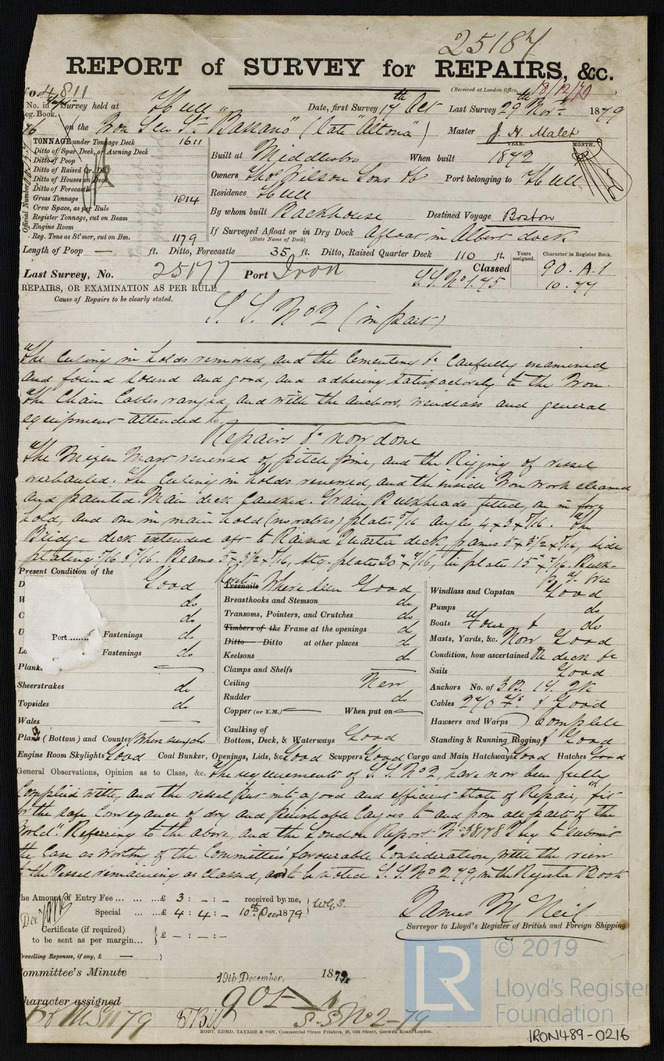 25187
REPORT of SURVEY for REPAIRS, &c.
(Received at London Office, 18/12/79
No. 4811
No. in Survey held at Hull Date, first Survey 17th Oct Last Survey 29th Novr 1879
Reg. Book.
on the Iron Scr Sr "Bassano" (late "Altona") Master J. H. Malet
TONNAGE under Tonnage Deck 1611
Ditto of Spar Deck, or Awning Deck
Ditto of Poop
Ditto of Raised Qr. Deck
Ditto of Houses on Deck
Ditto of Forecastle
Gross Tonnage 1814
Crew Space, as per Rule
Register Tonnage, cut on Beam
Engine Room
Reg. Tons as St'mer, cut on Bm. 1179
Official Number
YEAR. MONTH.
Built at Middlesbro When built 1872
Owners Thos Wilson Sons & Co Port belonging to Hull
Residence Hull
By whom built Backhouse Destined Voyage Boston
If Surveyed Afloat or in Dry Dock Afloat in Albert dock
(State Name of Dock)
Length of Poop — ft. Ditto, Forecastle 35 ft. Ditto, Raised Quarter Deck 110 ft.
Years assigned. Character in Register Book.
Last Survey, No. 25177 Port Iron Classed 90.A.1
S.S. No 1.75 10.77
REPAIRS, OR EXAMINATION AS PER RULE
Cause of Repairs to be clearly stated.
S. S. No 2 (in part)
The Ceiling in holds removed, and the Cementing &c Carefully examined
and found sound and good, and adhering satisfactorily to the Iron.
The Chain Cables ranged, and with the anchors, windlass and general
equipment attended to.
Repairs &c now done
The Mizen Mast renewed of pitch pine, and the Rigging of vessel
overhauled. The Ceiling in holds renewed, and the inside Iron work cleaned
and painted Main deck Caulked. Grain Bulkheads fitted, on in fore
hold, and one in main hold plates 7/16 angles 4 x 3 x 7/16. The
Bridge deck extended aft to Raised Quarter deck, frames side
plating Beams Strg. plates 30" tie plate 15"
Present Condition of the
Good
do
do
do
Port Fastenings do
Fastenings do
Plank
Sheerstrakes do
Topsides do
Wales —
Plank (Bottom) and Counter Where seen do
Treenails Where seen Good
Breasthooks and Stemson do
Transoms, Pointers, and Crutches do
Timbers of the Frame at the openings do
Ditto Ditto at other places do
Keelsons do
Clamps and Shelfs —
Ceiling New
Rudder do
Copper (or Y.M.) — When put on —
Caulking of
Bottom, Deck, & Waterways Good
Windlass and Capstan Good
Pumps do
Boats do
Masts, Yards, &c. Now Good
Condition, how ascertained
Sails Good
Anchors No. of 3B. 1S. 2K
Cables 270 fs. Good
Hawsers and Warps Complete
Standing & Running Rigging Good
Engine Room Skylights Good Coal Bunker, Openings, Lids, &c. Good Scuppers Good Cargo and Main Hatchways Good Hatches Good
General Observations, Opinion as to Class, &c. The requirements of S.S. No 2, have now been fully
Complied with, and the vessel put into a good and efficient state of Repair, fit
for the safe Conveyance of dry and perishable Cargoes to and from all parts of the
World. Referring to the above, and the London Report No 38178 I beg to submit
the Case as worthy of the Committees favourable Consideration, with the view
to the Vessel remaining as Classed, and to be noted S.S. No 2.79, in the Register Book
The Amount of Entry Fee ... £ 3 : - : - received by me,
Special ... £ 4 : 4 : - 10th Decr 1879
Certificate (if required)
to be sent as per margin... } £ - : - : -
Travelling Expenses, if any, £ —
James McNeil
Surveyor to Lloyd's Register of British and Foreign Shipping
Committee's Minute 19th December, 1879
Character assigned 90 A 1
S.S. No 2-79
ROBT. EDMD. TAYLOR & SON, Commercial Steam Printers, 19, Old Street, Goswell Road, London.
LR
© 2019
Lloyd's Register
Foundation
IRON489-0216